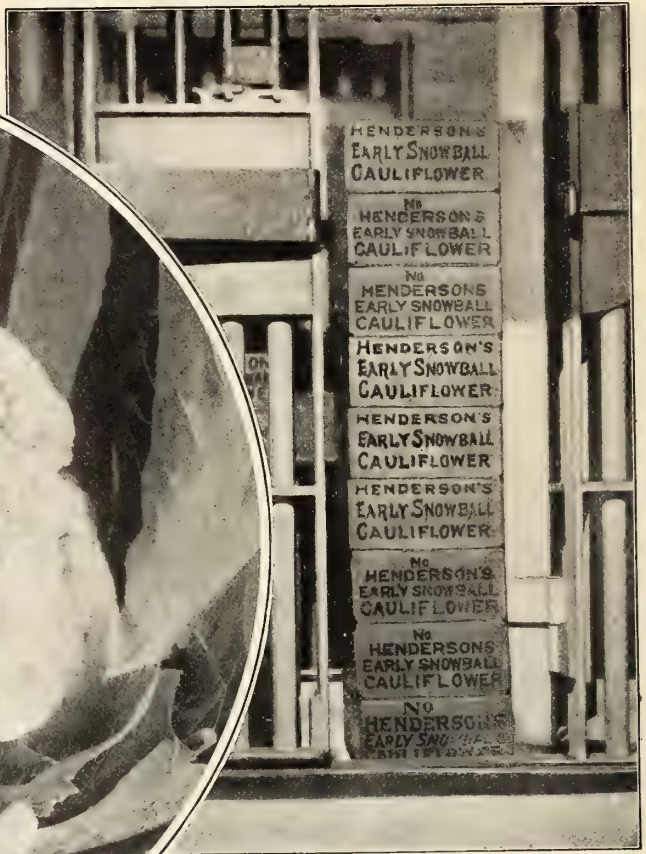 HENDERSON'S
EARLY SNOWBALL
CAULIFLOWER
No
HENDERSON'S
EARLY SNOWBALL
CAULIFLOWER
No
HENDERSONS
EARLY SNOWBALL
CAULIFLOWER
HENDERSON'S
EARLY SNOWBALL
CAULIFLOWER
HENDERSON'S
EARLY SNOWBALL
CAULIFLOWER
HENDERSON'S
EARLY SNOWBALL
CAULIFLOWER
No
HENDERSON'S
EARLY SNOWBALL
CAULIFLOWER
No
HENDERSONS
EARLY SNOWBALL
CAULIFLOWER
No
HENDERSON'S
EARLY SNOWBALL
CAULIFLOWER